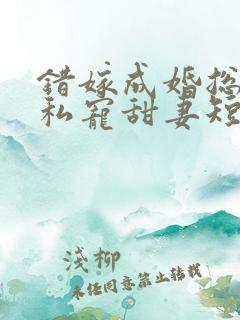 錯嫁成婚總
私寵甜妻短
淺柳
未经同意禁止转载